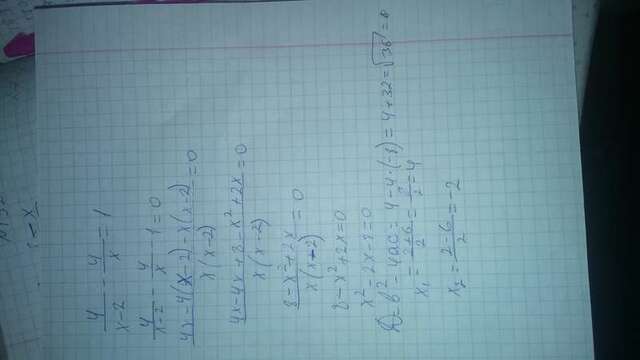 4/(x-2) - 4/x = 1
4/(x-2) - 4/x - 1 = 0
(4x-4(x-2)-x(x-2))/(x(x-2)) = 0
(4x-4x+8-x²+2x)/(x(x-2)) = 0
(8-x²+2x)/(x(x-2)) = 0
8-x²+2x=0
x²-2x-8=0
D=b²-4ac=4-4·(-8)=4+32=√36=6
x₁ = (2+6)/2 = 8/2 = 4
x₂ = (2-6)/2 = -2